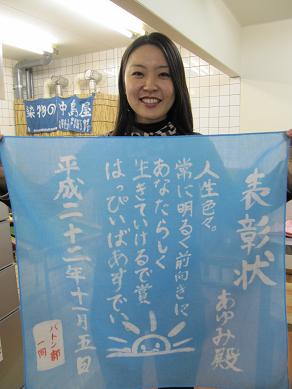 染物の中島屋
表彰状
あゆみ殿
人生色々。
常に明るく前向きに
あなたらしく
生きていけるで賞
はっぴいばあすでい
平成二十二年十一月五日
バトン部
一同